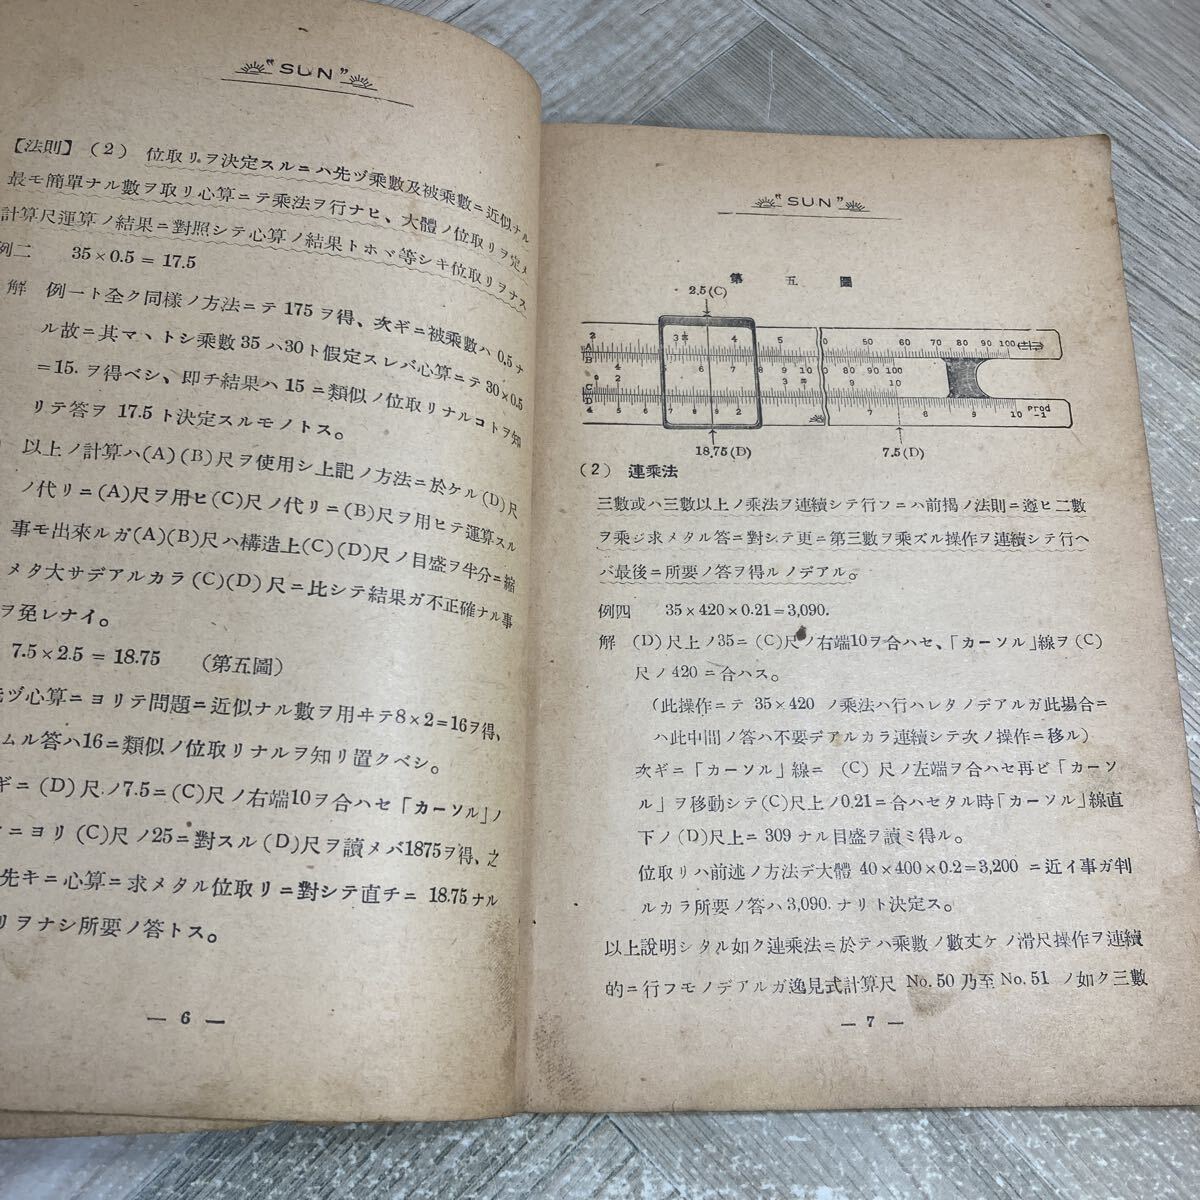 "SUN"
【法則】(2) 位取リヲ決定スルニハ先ヅ乘數及被乘數ニ近似ナル
最モ簡單ナル數ヲ取リ心算ニテ乘法ヲ行ナヒ、大體ノ位取リヲ定メ
計算尺運算ノ結果ニ對照シテ心算ノ結果トホヾ等シキ位取リヲナス
例二 35×0.5=17.5
解 例一ト全ク同樣ノ方法ニテ175ヲ得、次ギニ被乘數ハ0.5ナ
ル故ニ其マヽトシ乘數35ハ30ト假定スレバ心算ニテ30×0.5
=15.ヲ得ベシ、即チ結果ハ15ニ類似ノ位取リナルコトヲ知
リテ答ヲ17.5ト決定スルモノトス。
以上ノ計算ハ(A)(B)尺ヲ使用シ上記ノ方法ニ於ケル(D)尺
ノ代リニ(A)尺ヲ用ヒ(C)尺ノ代リニ(B)尺ヲ用ヒテ運算スル
事モ出來ルガ(A)(B)尺ハ構造上(C)(D)尺ノ目盛ヲ半分ニ縮
メタ大サデアルカラ(C)(D)尺ニ比シテ結果ガ不正確ナル事
ヲ免レナイ。
7.5×2.5=18.75 (第五圖)
先ヅ心算ニヨリテ問題ニ近似ナル數ヲ用ヰテ8×2=16ヲ得、
ムル答ハ16ニ類似ノ位取リナルヲ知リ置クベシ。
ギニ(D)尺ノ7.5ニ(C)尺ノ右端10ヲ合ハセ「カーソル」ノ
ニヨリ(C)尺ノ25ニ對スル(D)尺ヲ讀メバ1875ヲ得、之
先キニ心算ニ求メタル位取リニ對シテ直チニ18.75ナル
リヲナシ所要ノ答トス。
— 6 —
"SUN"
第五圖
2.5(C)
2 3 π 4 5 0 50 60 70 80 90 100
A
B
C
D
Prod
-1
18.75(D) 7.5(D)
(2) 連乘法
三數或ハ三數以上ノ乘法ヲ連續シテ行フニハ前揭ノ法則ニ遵ヒ二數
ヲ乘ジ求メタル答ニ對シテ更ニ第三數ヲ乘ズル操作ヲ連續シテ行ヘ
バ最後ニ所要ノ答ヲ得ルノデアル。
例四 35×420×0.21=3,090.
解 (D)尺上ノ35ニ(C)尺ノ右端10ヲ合ハセ、「カーソル」線ヲ(C)
尺ノ420ニ合ハス。
(此操作ニテ 35×420 ノ乘法ハ行ハレタノデアルガ此場合ニ
ハ此中間ノ答ハ不要デアルカラ連續シテ次ノ操作ニ移ル)
次ギニ「カーソル」線ニ (C)尺ノ左端ヲ合ハセ再ビ「カーソ
ル」ヲ移動シテ(C)尺上ノ0.21ニ合ハセタル時「カーソル」線直
下ノ(D)尺上ニ309ナル目盛ヲ讀ミ得ル。
位取リハ前述ノ方法デ大體 40×400×0.2=3,200 ニ近イ事ガ判
ルカラ所要ノ答ハ3,090.ナリト決定ス。
以上說明シタル如ク連乘法ニ於テハ乘數ノ數丈ケノ滑尺操作ヲ連續
的ニ行フモノデアルガ逸見式計算尺 No.50 乃至 No.51 ノ如ク三數
— 7 —